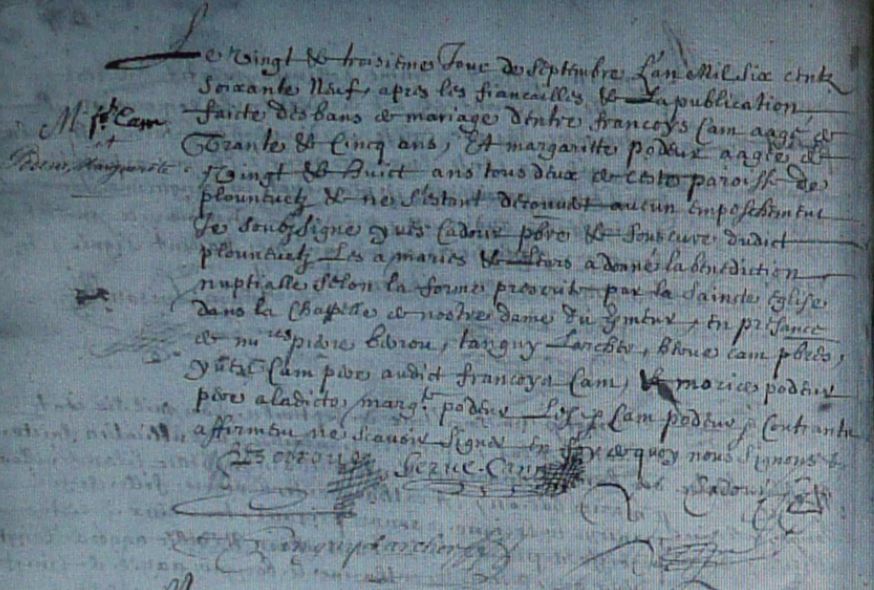 Le vingt & troisième Jour de septembre L'an Mil six centz
soixante Neuf, apres les fiancailles & la publication
faicte des bans de mariage d'entre francoys Cam aagé de
Trante & Cincq ans, Et margaritte podeur aagée de
Vingt & huict ans tous deux de ceste paroisse de
plounevetz & ne s'estant descouvert aucun empeschement
Je soubzsigné yves Cadour pbre & soubcuré dudict
plounevetz Les a mariés & leurs a donné la benediction
nuptialle selon la forme prescrite par la Saincte Eglise
dans la Chappelle de nostre dame du, En présance
de mres pierre, tanguy Larcher, herve cam pbres,
yves Cam pere audict francoys Cam, & morice podeur
pere a ladicte, margte podeur Les Cam podeur
affirment ne scavoir Signer En foy de quoy nous Signons
M. f. Cam
et
Podeur, Marguerite
Herve Cam
Cadour
Tanguy Larcher